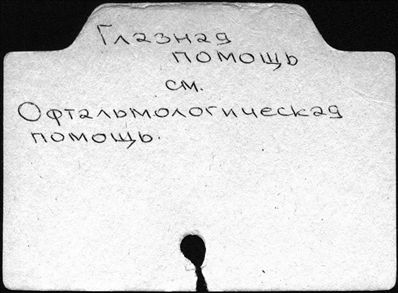 Глазная
помощь
см.
Офтальмологическая
помощь.